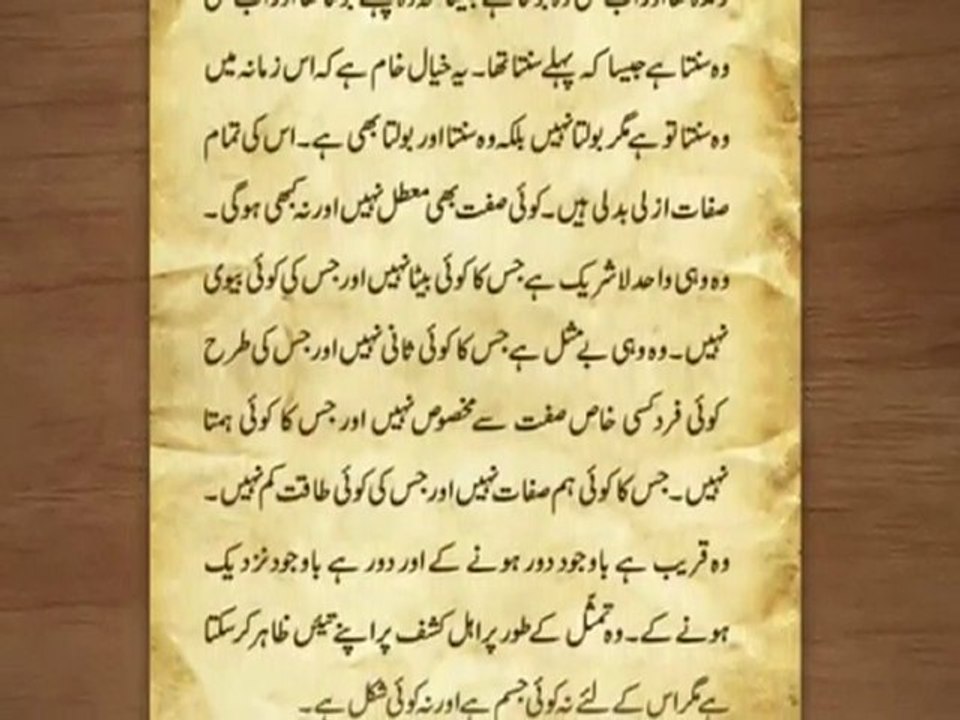 وہ سنتا ہے جیسا کہ پہلے سنتا تھا۔ یہ خیال خام ہے کہ اس زمانہ میں
وہ سنتا تو ہے مگر بولتا نہیں بلکہ وہ سنتا اور بولتا بھی ہے۔ اس کی تمام
صفات ازلی بدلی ہیں۔ کوئی صفت بھی معطل نہیں اور نہ کبھی ہوگی۔
وہ وہی واحد لا شریک ہے جس کا کوئی بیٹا نہیں اور جس کی کوئی بیوی
نہیں۔ وہ وہی بے مثل ہے جس کا کوئی ثانی نہیں اور جس کی طرح
کوئی فرد کسی خاص صفت سے مخصوص نہیں اور جس کا کوئی ہمتا
نہیں۔ جس کا کوئی ہم صفات نہیں اور جس کی کوئی طاقت کم نہیں۔
وہ قریب ہے باوجود دور ہونے کے اور دور ہے باوجود نزدیک
ہونے کے۔ وہ تمثّل کے طور پر اہل کشف پر اپنے تئیں ظاہر کر سکتا
ہے مگر اس کے لئے نہ کوئی جسم ہے اور نہ کوئی شکل ہے۔